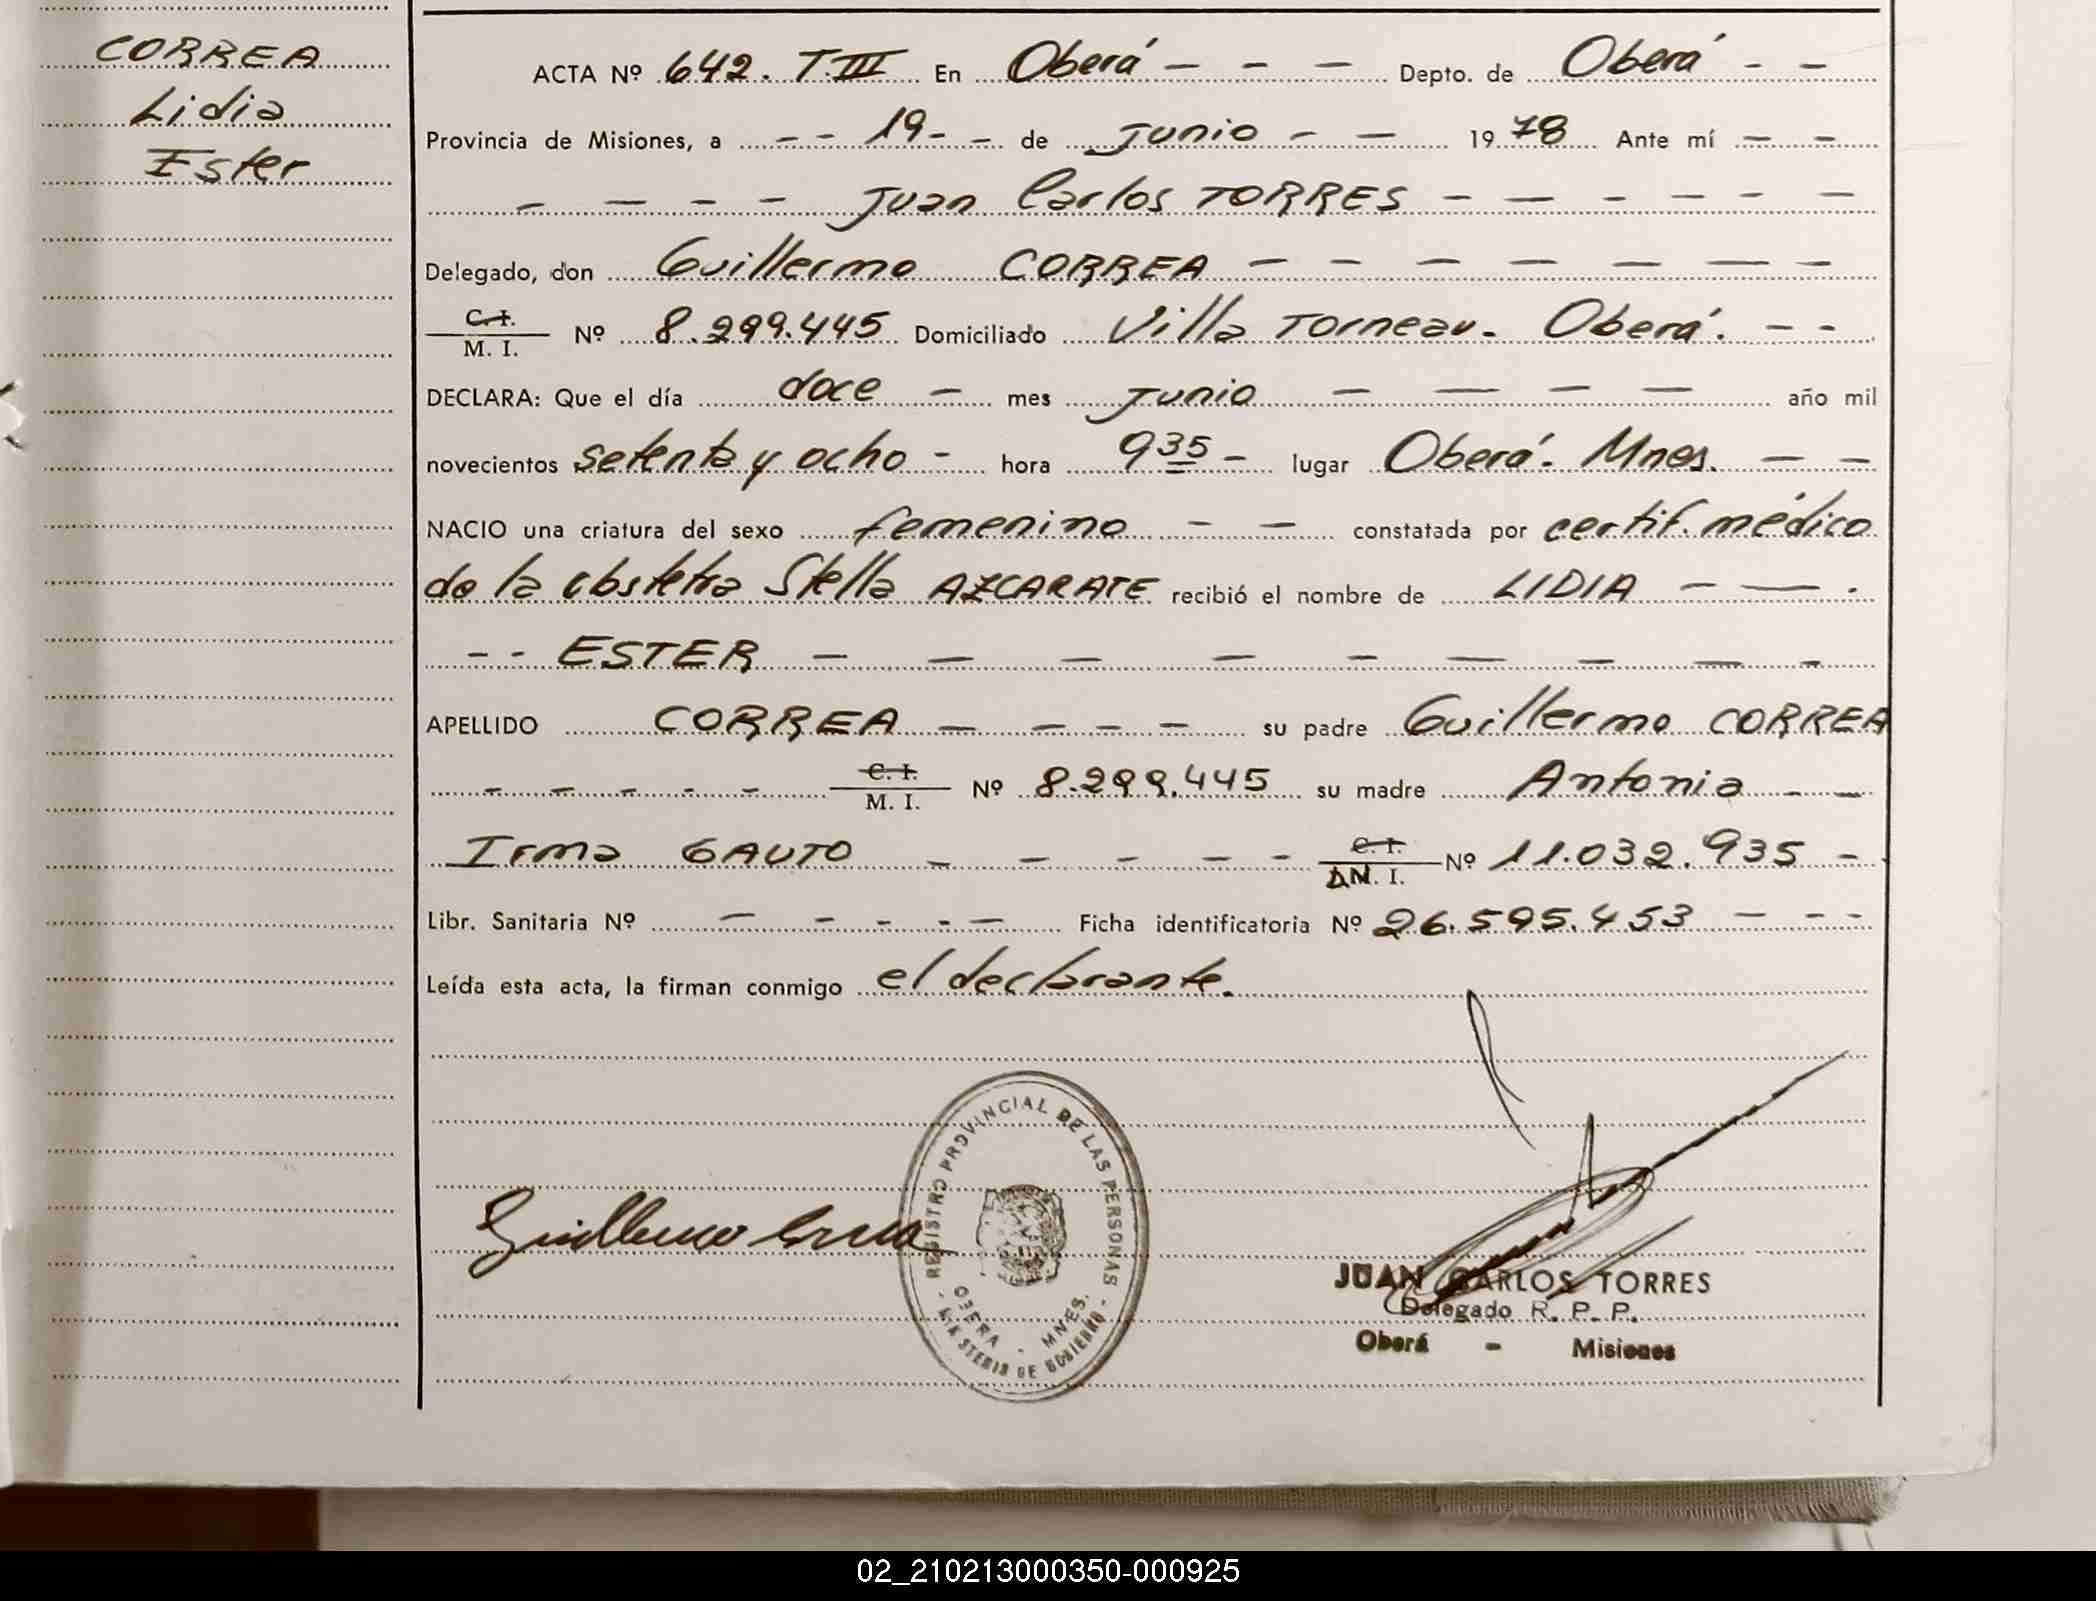 CORREA
Lidia
Ester
ACTA Nº 642. T.III En Oberá - - - Depto. de Oberá - -
Provincia de Misiones, a - - 19 - - de Junio - - 1978 Ante mí - -
- - - - Juan Carlos TORRES - - - - - -
Delegado, don Guillermo CORREA - - - - - - -
C. I.
M. I. Nº 8.299.445 Domiciliado Villa Torneau. Oberá. - -
DECLARA: Que el día doce - mes Junio - - - - año mil
novecientos setenta y ocho - hora 9 35 - lugar Oberá. Mnes. - -
NACIO una criatura del sexo femenino - - constatada por certif. médico
de la obstetra Stella AZCARATE recibió el nombre de LIDIA - - .
- - ESTER - - - - - - - - -
APELLIDO CORREA - - - - su padre Guillermo CORREA
- - - - - C. I.
M. I. Nº 8.299.445 su madre Antonia - -
Irma GAUTO - - - - - C. I.
DN. I. Nº 11.032.935 -
Libr. Sanitaria Nº - - - - - Ficha identificatoria Nº 26.595.453 - - -
Leída esta acta, la firman conmigo el declarante.
Guillermo Correa
REGISTRO PROVINCIAL DE LAS PERSONAS
OBERA - MNES.
- MINISTERIO DE GOBIERNO -
JUAN CARLOS TORRES
Delegado R. P. P.
Oberá - Misiones
02_210213000350-000925